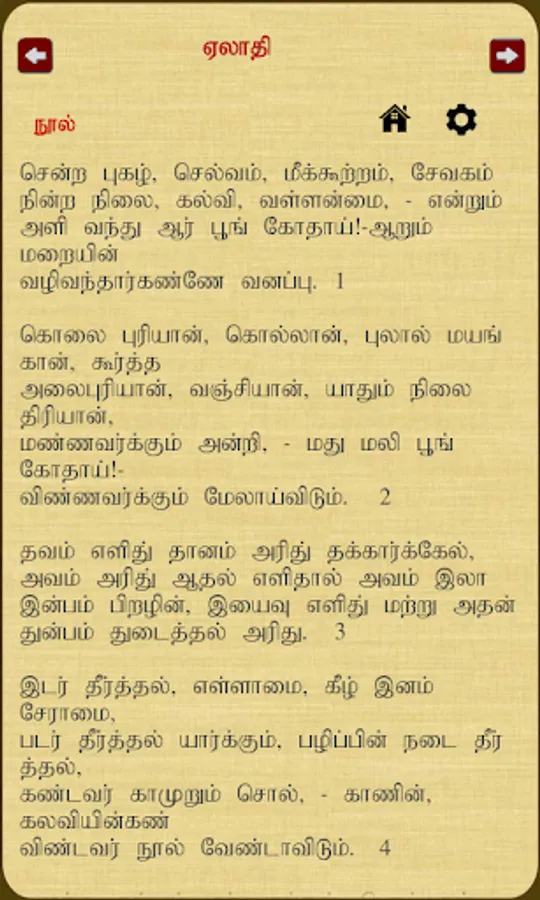 ஏலாதி
நூல்
சென்ற புகழ், செல்வம், மீக்கூற்றம், சேவகம்
நின்ற நிலை, கல்வி, வள்ளன்மை, - என்றும்
அளி வந்து ஆர் பூங் கோதாய்!-ஆறும்
மறையின்
வழிவந்தார்கண்ணே வனப்பு. 1
கொலை புரியான், கொல்லான், புலால் மயங்
கான், கூர்த்த
அலைபுரியான், வஞ்சியான், யாதும் நிலை
திரியான்,
மண்ணவர்க்கும் அன்றி, - மது மலி பூங்
கோதாய்!-
விண்ணவர்க்கும் மேலாய்விடும். 2
தவம் எளிது தானம் அரிது தக்கார்க்கேல்,
அவம் அரிது ஆதல் எளிதால் அவம் இலா
இன்பம் பிறழின், இயைவு எளிது மற்று அதன்
துன்பம் துடைத்தல் அரிது. 3
இடர் தீர்த்தல், எள்ளாமை, கீழ் இனம்
சேராமை,
படர் தீர்த்தல் யார்க்கும், பழிப்பின் நடை தீர்
த்தல்,
கண்டவர் காமுறும் சொல், - காணின்,
கலவியின்கண்
விண்டவர் நூல் வேண்டாவிடும். 4